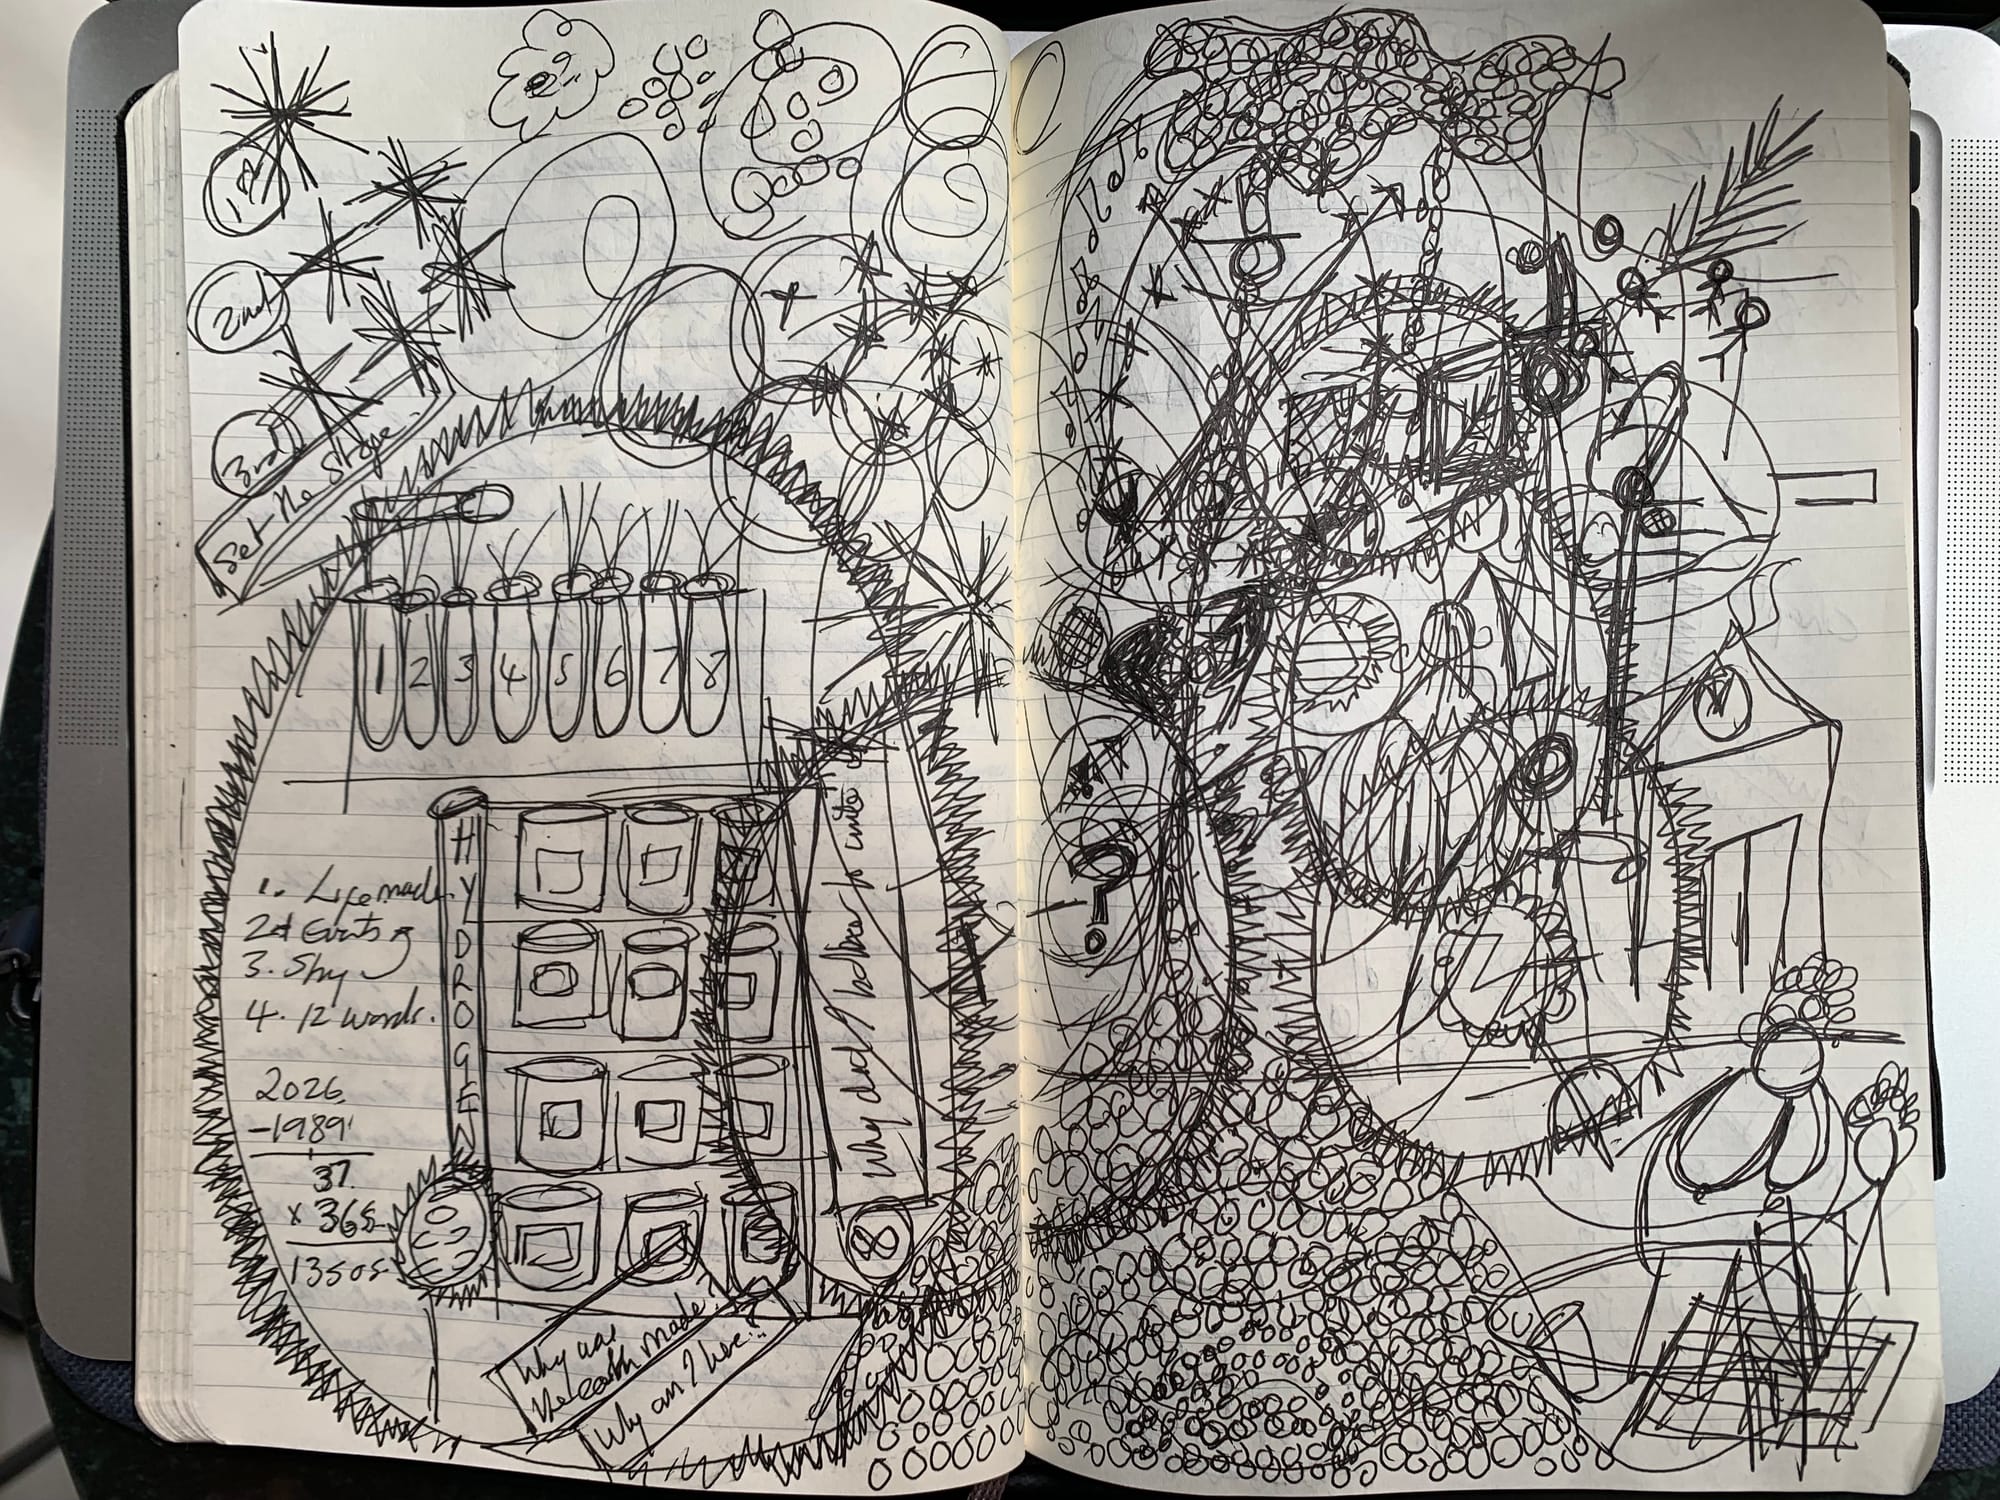 1st
2nd
3rd
Set the stage.
1 2 3 4 5 6 7 8
HYDROGEN
1. Life made
2
3. Shy
4. 12 words.
2026
-1989
37.
x 365
13505
Why did I
to write
8
Why was
the earth made?
Why am I here?
?